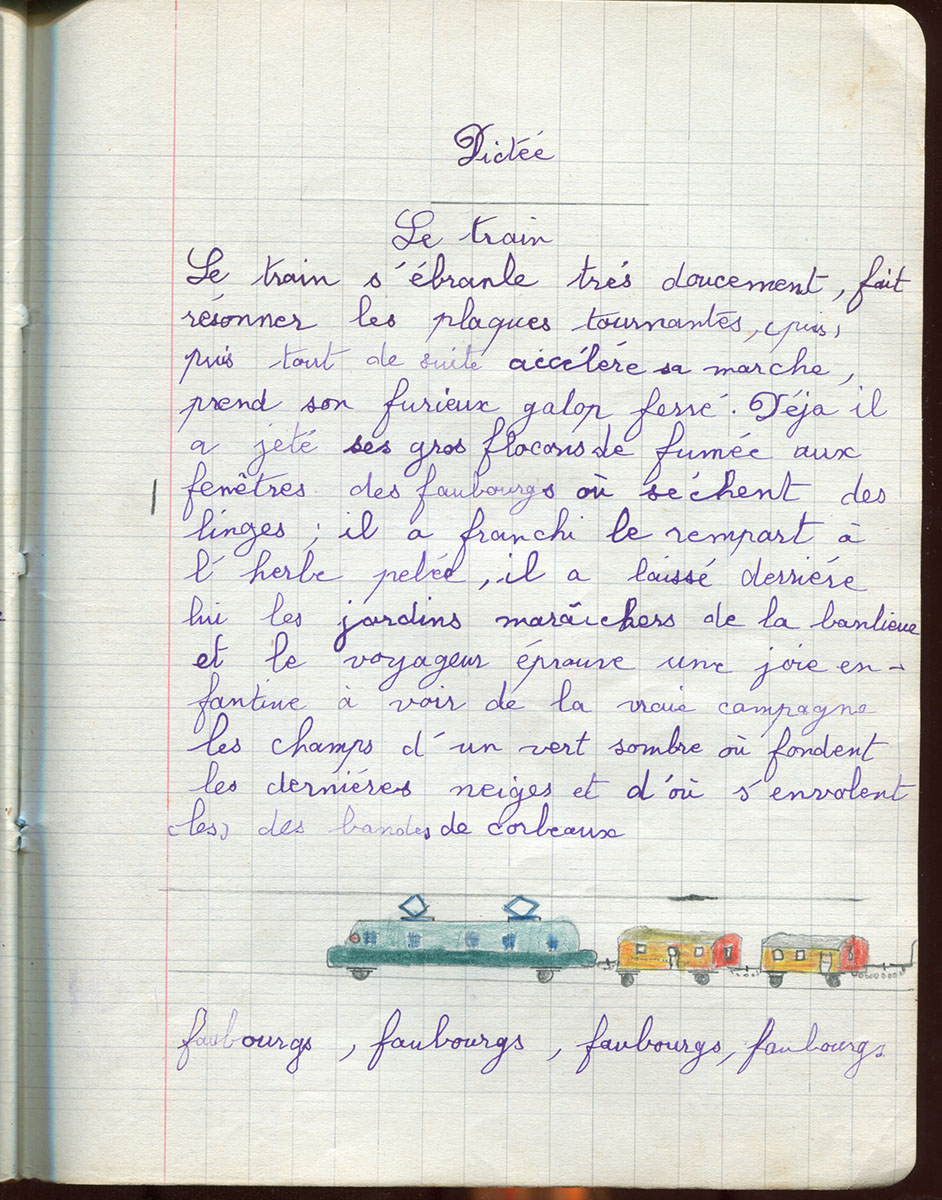 Dictée
Le train
Le train s'ébranle trés doucement, fait
résonner les plaques tournantes, (puis)
puis tout de suite accéléré sa marche,
prend son furieux galop ferré. Déja il
a jeté ses gros flocons de fumée aux
fenêtres des faubourgs où séchent des
linges ; il a franchi le rempart à
l'herbe pelée, il a laissé derriére
lui les jardins maraîchers de la banlieue
et le voyageur éprouve une joie en-
fantine à voir de la vraie campagne
les champs d'un vert sombre où fondent
les derniéres neiges et d'où s'envolent
(les) des bandes de corbeaux
faubourgs, faubourgs, faubourgs, faubourgs